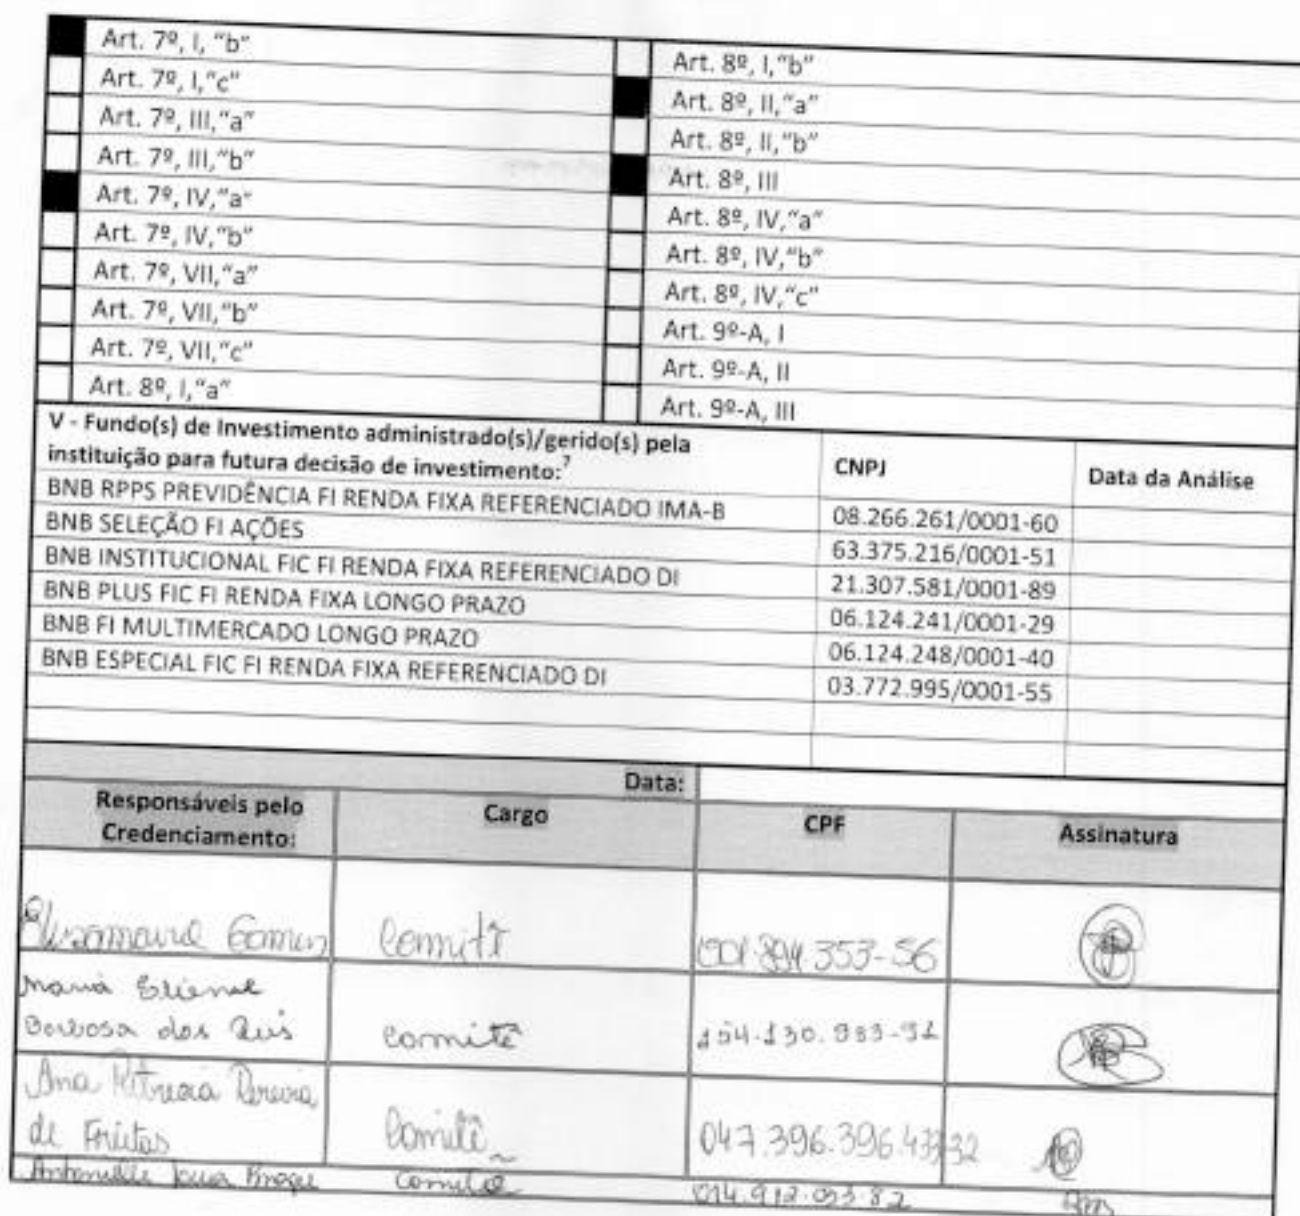 Art. 7º, I, "b"
Art. 7º, I,"c"
Art. 7º, III,"a"
Art. 7º, III,"b"
Art. 7º, IV,"a"
Art. 7º, IV,"b"
Art. 7º, VII,"a"
Art. 7º, VII,"b"
Art. 7º, VII,"c"
Art. 8º, I,"a"
Art. 8º, I,"b"
Art. 8º, II,"a"
Art. 8º, II,"b"
Art. 8º, III
Art. 8º, IV,"a"
Art. 8º, IV,"b"
Art. 8º, IV,"c"
Art. 9º-A, I
Art. 9º-A, II
Art. 9º-A, III
V - Fundo(s) de Investimento administrado(s)/gerido(s) pela
instituição para futura decisão de investimento:7 CNPJ Data da Análise
BNB RPPS PREVIDÊNCIA FI RENDA FIXA REFERENCIADO IMA-B 08.266.261/0001-60
BNB SELEÇÃO FI AÇÕES 63.375.216/0001-51
BNB INSTITUCIONAL FIC FI RENDA FIXA REFERENCIADO DI 21.307.581/0001-89
BNB PLUS FIC FI RENDA FIXA LONGO PRAZO 06.124.241/0001-29
BNB FI MULTIMERCADO LONGO PRAZO 06.124.248/0001-40
BNB ESPECIAL FIC FI RENDA FIXA REFERENCIADO DI 03.772.995/0001-55
Data:
Responsáveis pelo
Credenciamento: Cargo CPF Assinatura
Gomes Comitê
Maria
Barbosa dos Comitê
Ana Pereira
de Freitas Comitê
Comitê